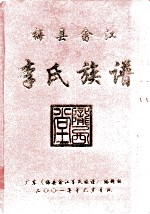 梅县畲江
李氏族谱
陇西堂
广东《梅县畲江李氏族谱》编辑组
二〇〇一年十二月